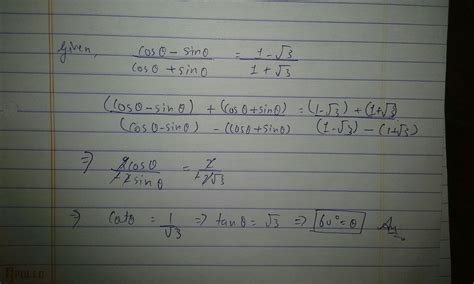 Given, (cosθ - sinθ)/(cosθ + sinθ) = (1 - √3)/(1 + √3)
((cosθ - sinθ) + (cosθ + sinθ))/((cosθ - sinθ) - (cosθ + sinθ)) = ((1 - √3) + (1 + √3))/((1 - √3) - (1 + √3))
⇒ 2cosθ/-2sinθ = 2/-2√3
⇒ cotθ = 1/√3 ⇒ tanθ = √3 ⇒ 60° = θ
APOLLO